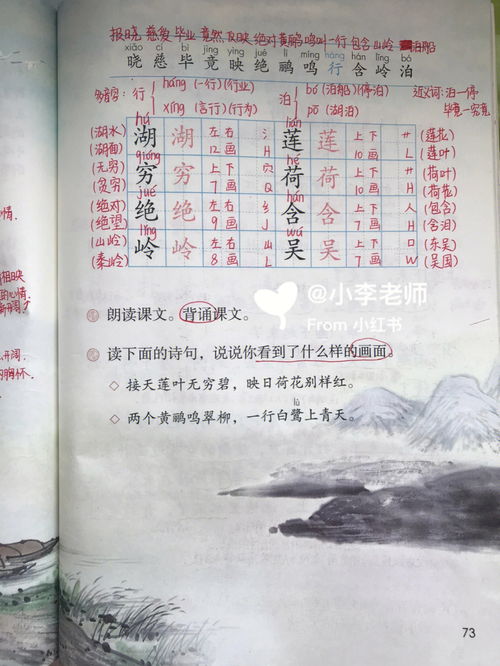 报晓 慈爱 毕业 竟然 反映 绝对 黄鹂 鸣叫 一行 包含 山岭 泊船
xiǎo cí bì jìng yìng jué lí míng háng hán lǐng bó
晓 慈 毕 竟 映 绝 鹂 鸣 行 含 岭 泊
多音字: 行 háng (一行)(行业) 泊 bó (泊船)(停泊) 近义词: 泊—停
xíng (言行)(行为) pō (湖泊) 毕竟—究竟
hú lián
(湖水) 湖 湖 左右 氵 莲 莲 上下 艹 (莲花)
(湖面) 12画 H 10画 L (莲叶)
qióng hé
(无穷) 穷 穷 上下 穴 荷 荷 上下 艹 (荷叶)
(贫穷) 7画 Q 10画 H (荷花)
jué hán
(绝对) 绝 绝 左右 纟 含 含 上下 人 (包含)
(绝望) 9画 J 7画 H (含泪)
lǐng wú
(山岭) 岭 岭 左右 山 吴 吴 上下 口 (东吴)
(秦岭) 8画 L 7画 W (吴国)
@小李老师
From 小红书
朗读课文。背诵课文。
读下面的诗句，说说你看到了什么样的画面。
◇ 接天莲叶无穷碧，映日荷花别样红。
lù
◇ 两个黄鹂鸣翠柳，一行白鹭上青天。
73